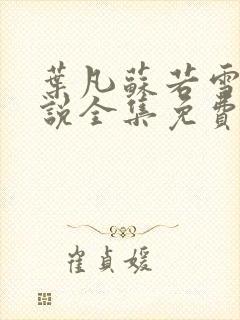 葉凡蘇若雪
說全集免費
崔貞媛